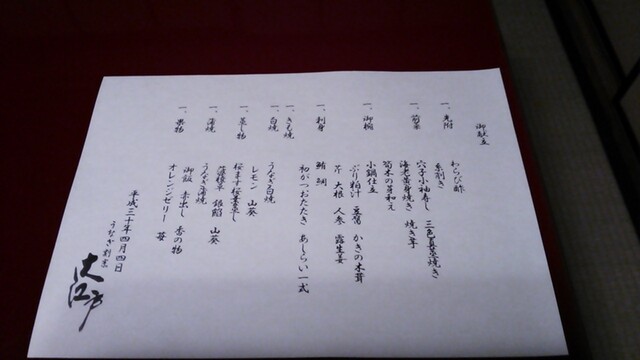 御献立
一、先附
わらび酢
糸割き
一、前菜
穴子小袖寿し 三色真薯焼き
海老黄身焼き 焼き芋
筍木の芽和え
一、御椀
小鍋仕立
ぶり粕汁 豆腐 かきの木茸
芹 大根 人参 露生姜
一、刺身
鮪 鯛
初がつおたたき あしらい一式
一、きも焼
一、白焼
うなぎ白焼
レモン 山葵
一、蒸し物
桜ます桜葉蒸し
蓮根草 銀餡 山葵
一、蒲焼
うなぎ蒲焼
御飯 赤出し 香の物
一、果物
オレンジゼリー 苺
平成三十年四月四日
うなぎ割烹
大江戸